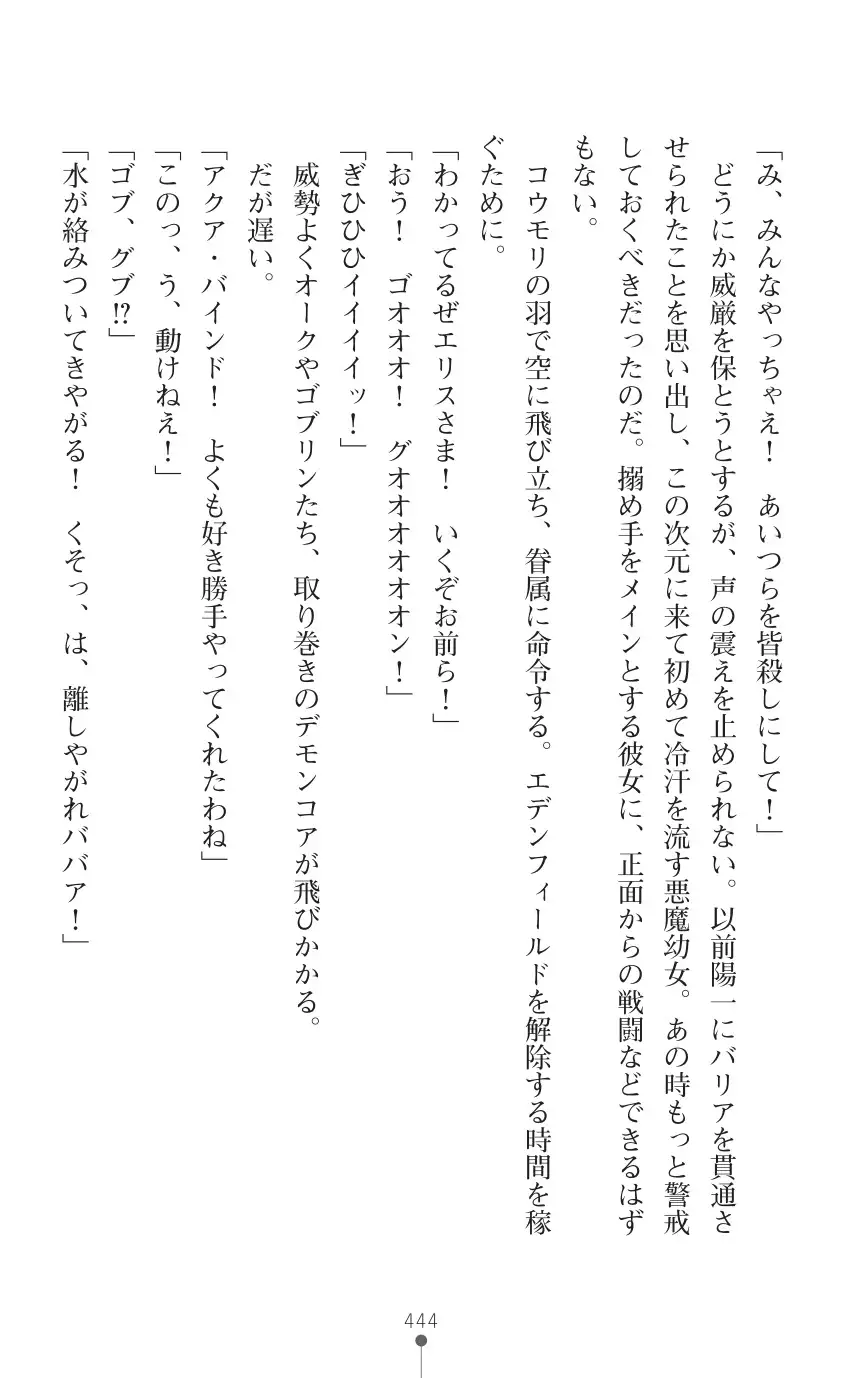 「み、みんなやっちゃえ！　あいつらを皆殺しにして！」
　どうにか威厳を保とうとするが、声の震えを止められない。以前陽一にバリアを貫通さ
せられたことを思い出し、この次元に来て初めて冷汗を流す悪魔幼女。あの時もっと警戒
しておくべきだったのだ。搦め手をメインとする彼女に、正面からの戦闘などできるはず
もない。
　コウモリの羽で空に飛び立ち、眷属に命令する。エデンフィールドを解除する時間を稼
ぐために。
「わかってるぜエリスさま！　いくぞお前ら！」
「おう！　ゴオオオ！　グオオオオオオン！」
「ぎひひひイイイイッ！」
　威勢よくオークやゴブリンたち、取り巻きのデモンコアが飛びかかる。
　だが遅い。
「アクア・バインド！　よくも好き勝手やってくれたわね」
「このっ、う、動けねえ！」
「ゴブ、グブ!?」
「水が絡みついてきやがる！　くそっ、は、離しやがれババア！」
444